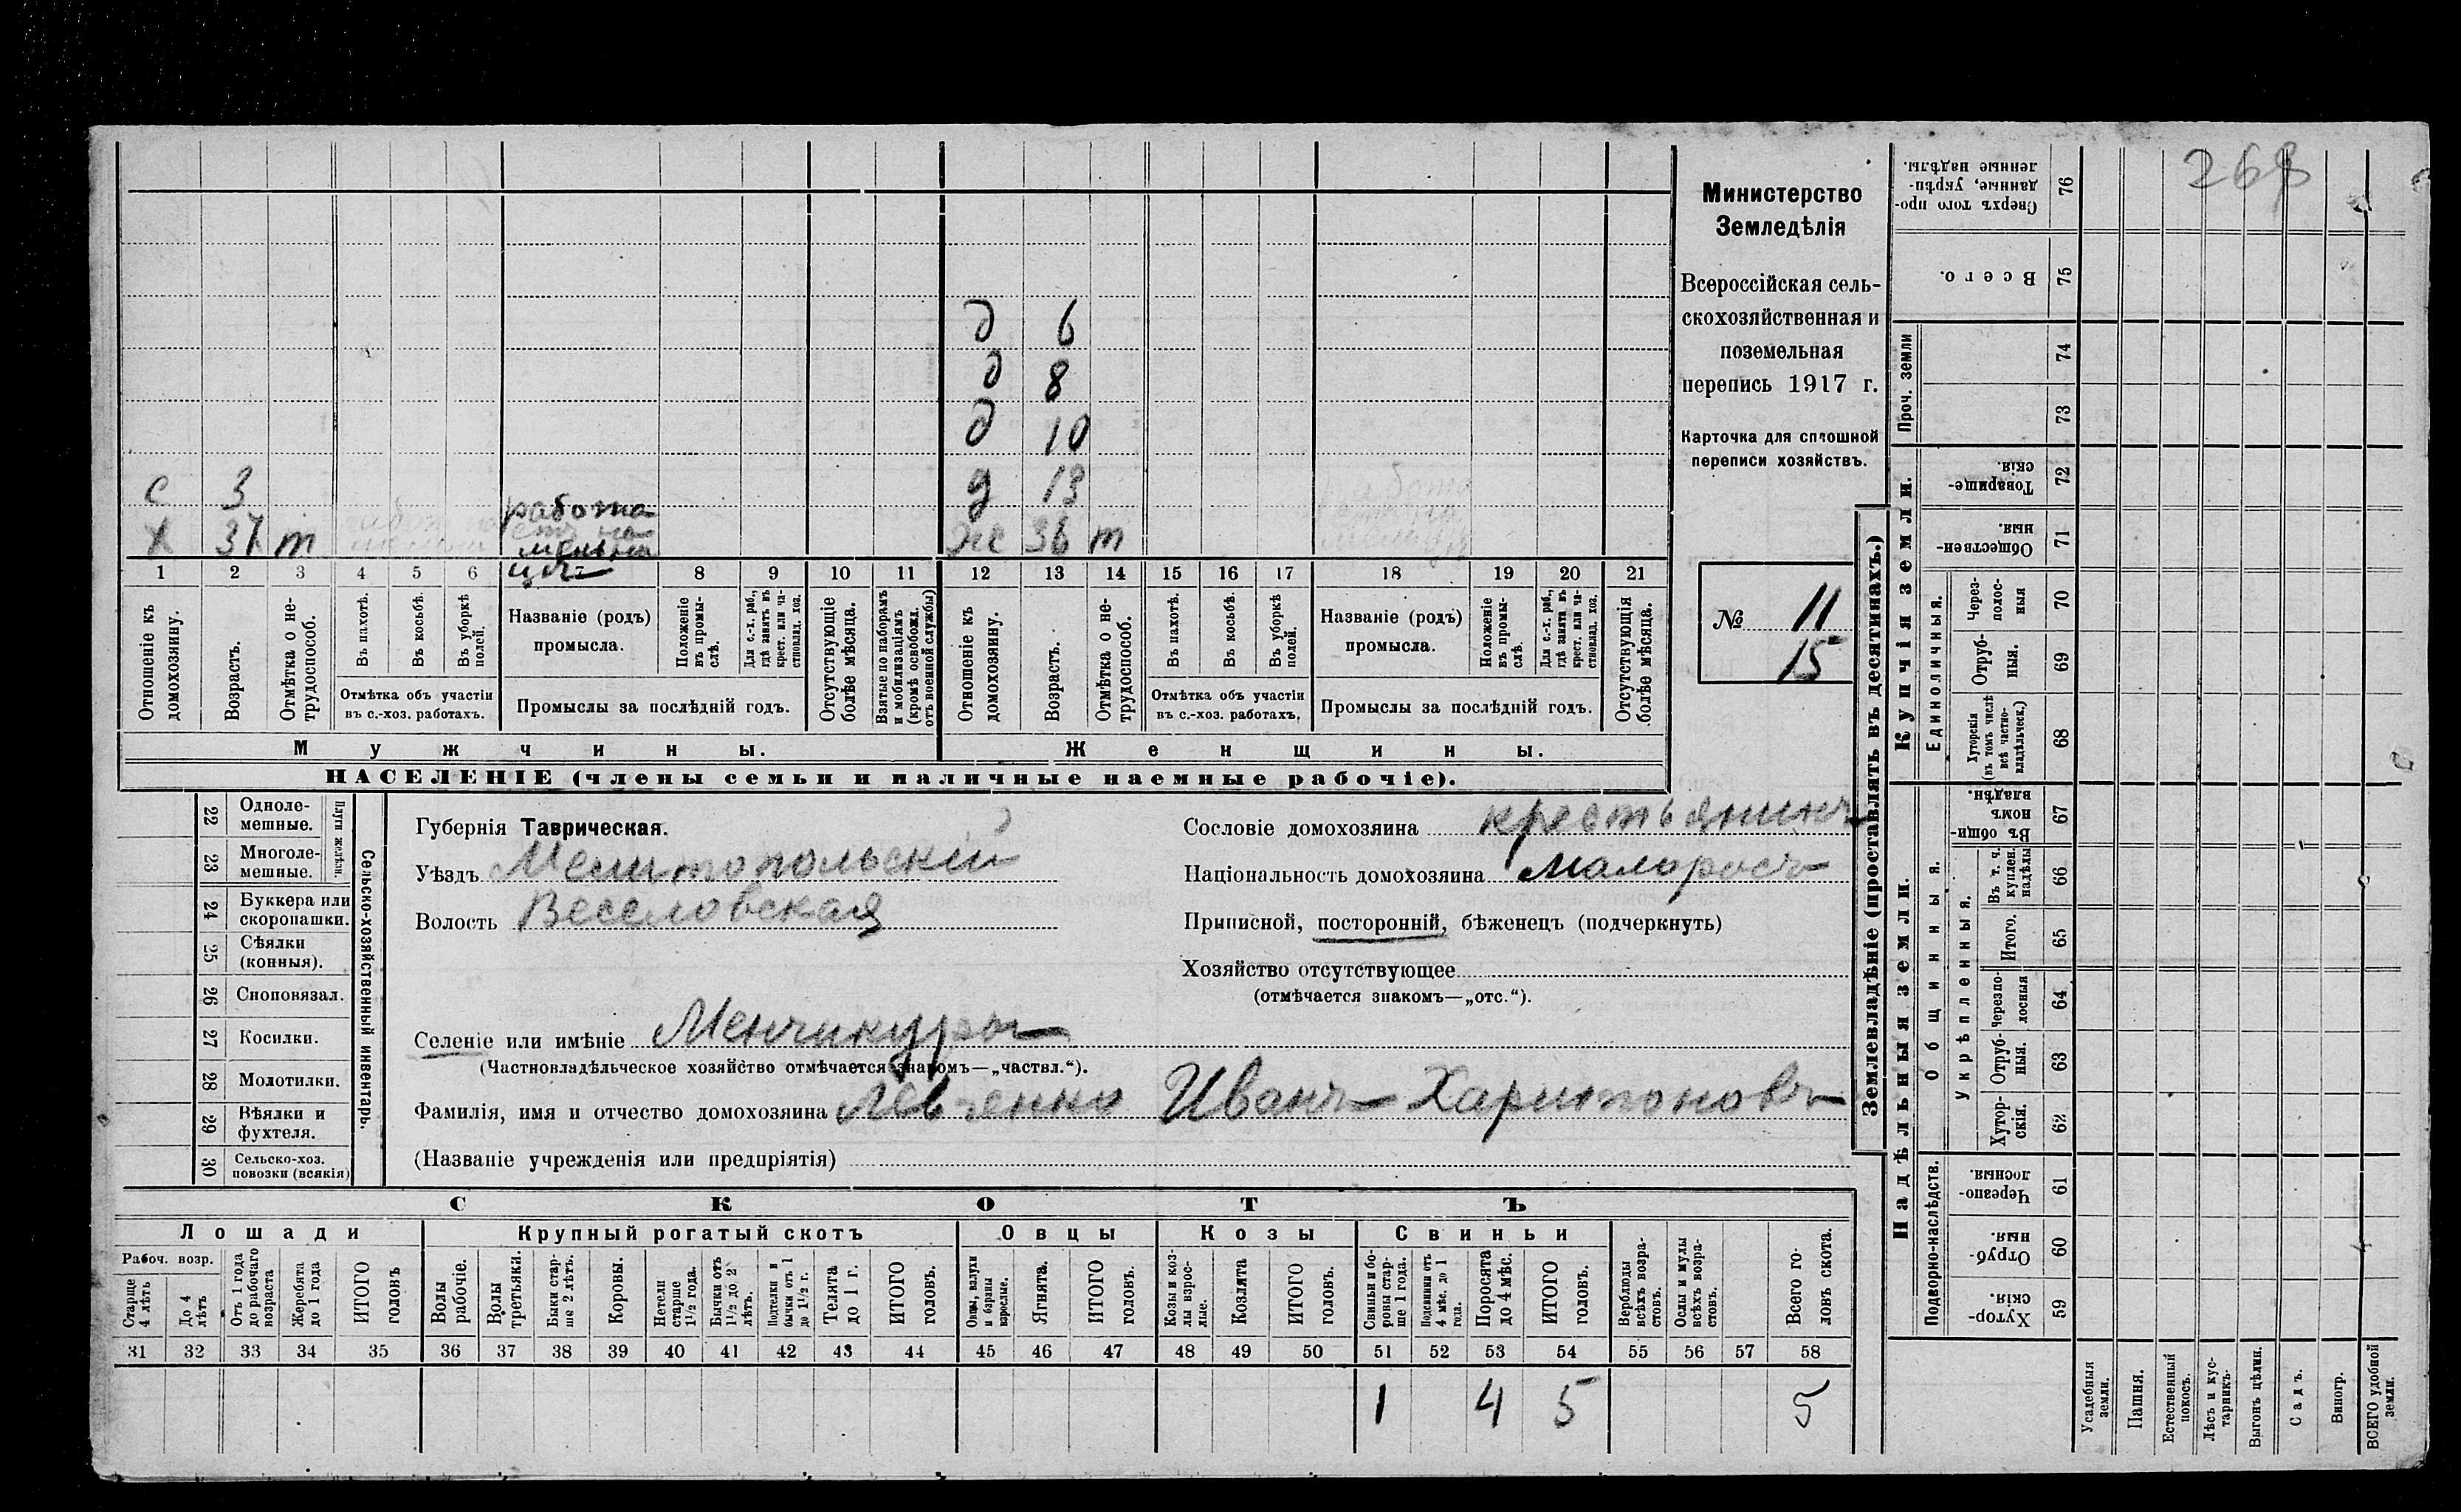 268
Министерство
Земледѣлія
Всероссійская сель-
скохозяйственная и
поземельная
перепись 1917 г.
Карточка для сплошной
переписи хозяйствъ.
№ 11
15
д 6
д 8
д 10
с 3 д 13
работа
етъ на
х 37 т мельни ж 36 т
цѣ
1 2 3 4 5 6 7 8 9 10 11 12 13 14 15 16 17 18 19 20 21
Отношеніе къ домохозяину.
Возрастъ.
Отмѣтка о не-трудоспособ.
Въ пахотѣ.
Въ косьбѣ.
Въ уборкѣ полей.
Отмѣтка объ участіи
въ с.-хоз. работахъ.
Названіе (родъ)
промысла.
Положеніе въ промы-слѣ.
Для с.-х. раб., гдѣ занятъ въ крест. или ча-стновлад. хоз.
Промыслы за послѣдній годъ.
Отсутствующіе болѣе мѣсяца.
Взятые по наборамъ и мобилизаціямъ (кромѣ освобожд. отъ военной службы)
Отношеніе къ домохозяину.
Возрастъ.
Отмѣтка о не-трудоспособ.
Въ пахотѣ.
Въ косьбѣ.
Въ уборкѣ полей.
Отмѣтка объ участіи
въ с.-хоз. работахъ.
Названіе (родъ)
промысла.
Положеніе въ промы-слѣ.
Для с.-х. раб., гдѣ занята въ крест. или ча-стновлад. хоз.
Промыслы за послѣдній годъ.
Отсутствующія болѣе мѣсяца.
Мужчины. Женщины.
НАСЕЛЕНІЕ (члены семьи и наличные наемные рабочіе).
Сельско-хозяйственный инвентарь.
Плуги желѣзн.
22 Одноле-мешные.
23 Многоле-мешные.
24 Буккера или скоропашки.
25 Сѣялки (конныя).
26 Сноповязал.
27 Косилки.
28 Молотилки.
29 Вѣялки и фухтеля.
30 Сельско-хоз. повозки (всякія)
Губернія Таврическая.
Уѣздъ Мелитопольскій
Волость Веселовская
Сословіе домохозяина крестьянинъ
Національность домохозяина малоросъ
Приписной, посторонній, бѣженецъ (подчеркнуть)
Хозяйство отсутствующее
(отмѣчается знакомъ—„отс.“).
Селеніе или имѣніе Менчикуры
(Частновладѣльческое хозяйство отмѣчается знакомъ—„частвл.“).
Фамилія, имя и отчество домохозяина Левченко Иванъ Харитоновъ
(Названіе учрежденія или предпріятія)
СКОТЪ
Лошади Крупный рогатый скотъ Овцы Козы Свиньи
Рабоч. возр.
Старше 4 лѣтъ
До 4 лѣтъ
Отъ 1 года до рабочаго возраста
Жеребята до 1 года
ИТОГО головъ
Волы рабочіе.
Волы третьяки.
Быки стар-ше 2 лѣтъ.
Коровы.
Нетели старше 1½ года.
Бычки отъ 1½ до 2 лѣтъ.
Подтелки и бычки отъ 1 до 1½ г.
Телята до 1 г.
ИТОГО головъ.
Овцы, валухи и бараны взрослые.
Ягнята.
ИТОГО головъ.
Козы и коз-лы взрос-лые.
Козлята
ИТОГО головъ.
Свиньи и бо-ровы стар-ше 1 года.
Подсвинки отъ 4 мѣс. до 1 года.
Поросята до 4 мѣс.
ИТОГО головъ.
Верблюды всѣхъ возра-стовъ.
Ослы и мулы всѣхъ возра-стовъ.
Всего го-ловъ скота.
31 32 33 34 35 36 37 38 39 40 41 42 43 44 45 46 47 48 49 50 51 52 53 54 55 56 57 58
1 4 5 5
Землевладѣніе (проставлять въ десятинахъ.)
Надѣльныя земли. Купчія земли. Проч. земли
Подворно-наслѣдств.
Общинныя.
Укрѣпленныя.
Единоличныя.
Сверхъ того про-данные, укрѣп-ленные надѣлы. 76
Всего. 75
74
73
Товарище-скія. 72
Обществен-ныя. 71
Через-полос-ныя 70
Отруб-ныя. 69
Хуторскія (въ томъ числѣ всѣ частно-владѣльческ.) 68
Въ общин-номъ владѣн. 67
Въ т. ч. куплен. надѣлы 66
Итого. 65
Черезпо-лосныя 64
Отруб-ныя. 63
Хутор-скія. 62
Черезпо-лосныя 61
Отруб-ныя. 60
Хутор-скія. 59
Усадебныя земли.
Пашня.
Естественный покосъ.
Лѣсъ и кус-тарникъ.
Выгонъ цѣлин.
Садъ.
Виногр.
ВСЕГО удобной земли.